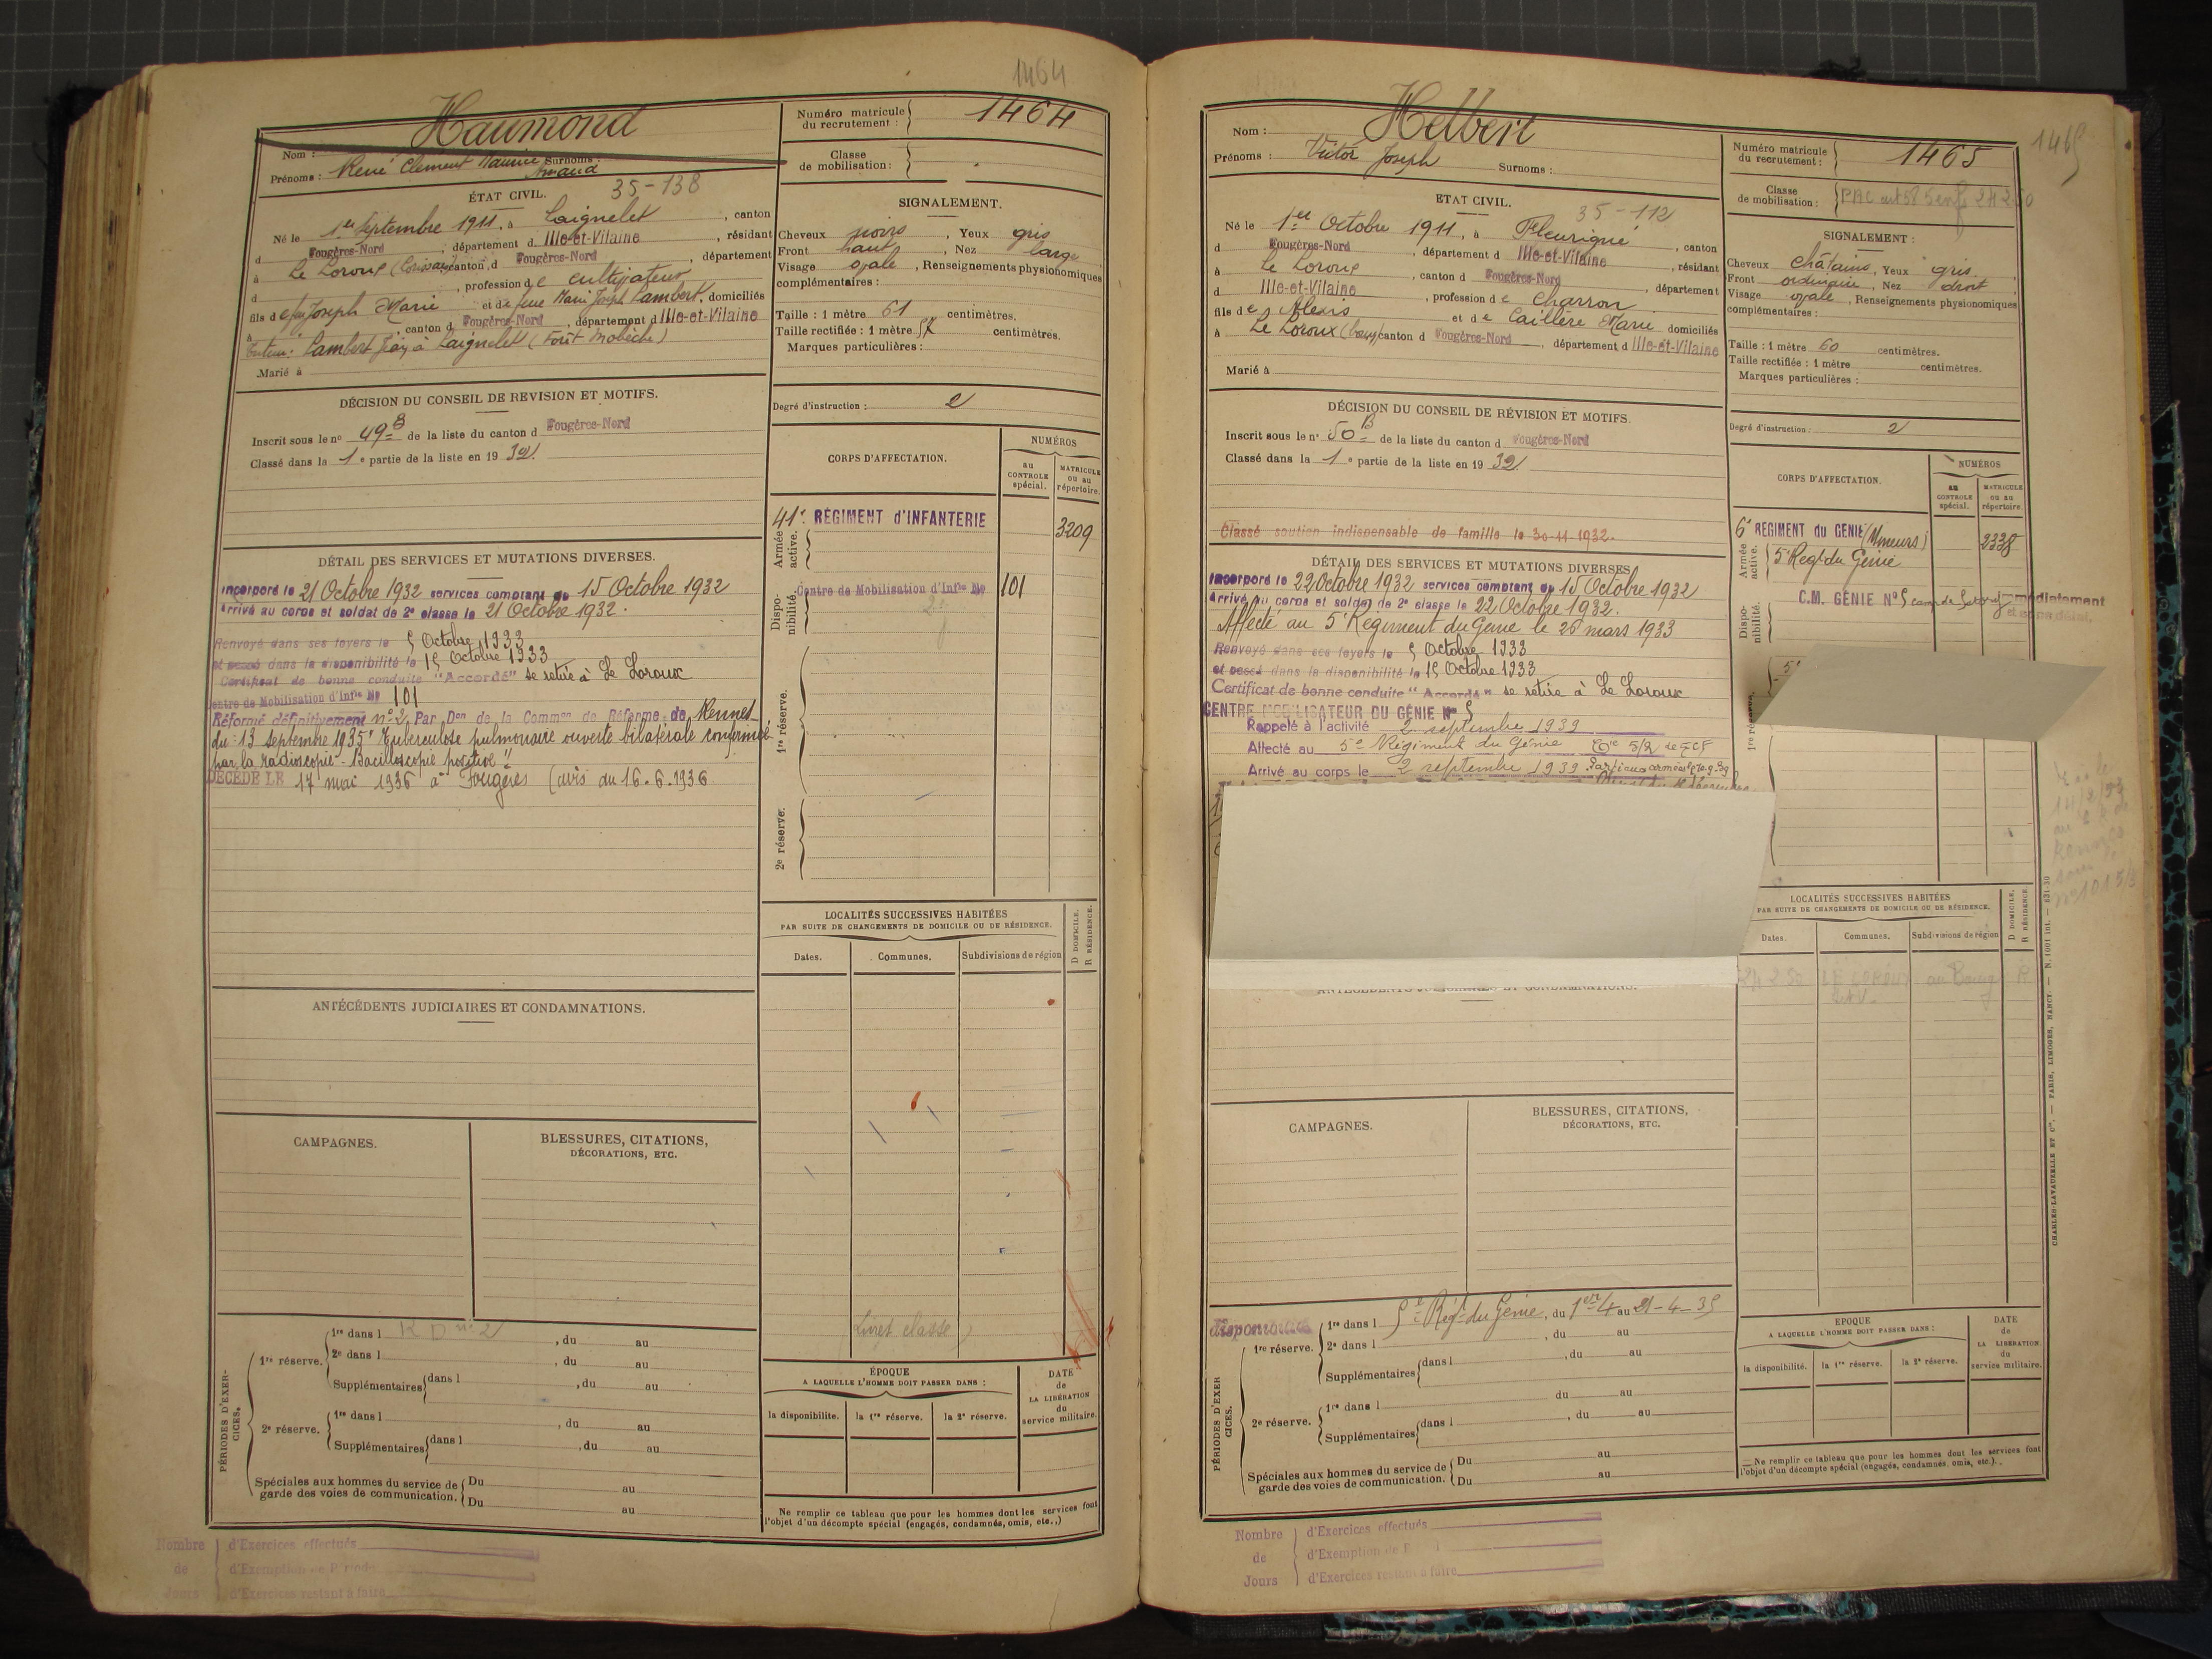 1464
Haumond
Nom :
Prénoms : René Clément Maurice Surnoms :
Armand
Numéro matricule du recrutement : 1464
Classe de mobilisation :
ÉTAT CIVIL. 35-138
Né le 1er Septembre 1911, à Laignelet, canton
d Fougères-Nord, département d Ille-et-Vilaine, résidant
à Le Loroux canton d Fougères-Nord, département
d , profession de cultivateur
fils de feu Joseph Marie et de feue Marie Joseph Lambert, domiciliés
à canton d Fougères-Nord, département d Ille-et-Vilaine
Tuteur : Lambert à Laignelet (Forêt
Marié à
SIGNALEMENT.
Cheveux noirs, Yeux gris
Front haut, Nez large
Visage ovale, Renseignements physionomiques
complémentaires :
Taille : 1 mètre 61 centimètres.
Taille rectifiée : 1 mètre 57 centimètres.
Marques particulières :
Degré d'instruction : 2
DÉCISION DU CONSEIL DE REVISION ET MOTIFS.
Inscrit sous le no 49 B de la liste du canton d Fougères-Nord
Classé dans la 1e partie de la liste en 1932.
CORPS D'AFFECTATION.
NUMÉROS
au CONTROLE spécial.
MATRICULE ou au répertoire.
Armée active.
41e RÉGIMENT d'INFANTERIE 3209
Disponibilité.
Centre de Mobilisation d'Infie No 101
1re réserve.
2e réserve.
DÉTAIL DES SERVICES ET MUTATIONS DIVERSES.
Incorporé le 21 Octobre 1932 services comptant du 15 Octobre 1932
Arrivé au corps et soldat de 2e classe le 21 Octobre 1932.
Renvoyé dans ses foyers le 5 Octobre 1933
et passé dans la disponibilité le 15 Octobre 1933
Certificat de bonne conduite "Accordé" se retire à Le Loroux
Centre de Mobilisation d'Infie No 101
Réformé définitivement no 2 Par Don de la Common de Réforme de Rennes
du 13 septembre 1935 "Tuberculose pulmonaire ouverte bilatérale confirmée
par la radioscopie - Bacilloscopie positive"
DÉCÉDÉ LE 17 mai 1936 à Fougères (avis du 16.6.1936
LOCALITÉS SUCCESSIVES HABITÉES
PAR SUITE DE CHANGEMENTS DE DOMICILE OU DE RÉSIDENCE.
D DOMICILE.
R RÉSIDENCE.
Dates.
Communes.
Subdivisions de région
ANTÉCÉDENTS JUDICIAIRES ET CONDAMNATIONS.
CAMPAGNES.
BLESSURES, CITATIONS,
DÉCORATIONS, ETC.
Livret classé
PÉRIODES D'EXERCICES.
1re réserve.
1re dans l R D no 2, du au
2e dans l , du au
Supplémentaires dans l , du au
2e réserve.
1re dans l , du au
Supplémentaires dans l , du au
Spéciales aux hommes du service de garde des voies de communication.
Du au
Du au
ÉPOQUE
A LAQUELLE L'HOMME DOIT PASSER DANS :
la disponibilité.
la 1re réserve.
la 2e réserve.
DATE de LA LIBÉRATION du service militaire.
Ne remplir ce tableau que pour les hommes dont les services font
l'objet d'un décompte spécial (engagés, condamnés, omis, etc.,)
Nombre de Jours
d'Exercices effectués
d'Exemption de Période
d'Exercices restant à faire
1465
Nom : Helbert
Prénoms : Victor Joseph Surnoms :
Numéro matricule du recrutement : 1465
Classe de mobilisation :
ETAT CIVIL. 35-112
Né le 1er Octobre 1911, à Fleurigné, canton
d Fougères-Nord, département d Ille-et-Vilaine, résidant
à Le Loroux, canton d Fougères-Nord, département
d Ille-et-Vilaine, profession de Charron
fils de Alexis et de Caillère Marie domiciliés
à Le Loroux (bourg) canton d Fougères-Nord, département d Ille-et-Vilaine
Marié à
SIGNALEMENT :
Cheveux châtains, Yeux gris
Front ordinaire, Nez droit
Visage ovale, Renseignements physionomiques
complémentaires :
Taille : 1 mètre 60 centimètres.
Taille rectifiée : 1 mètre centimètres.
Marques particulières :
Degré d'instruction : 2
DÉCISION DU CONSEIL DE RÉVISION ET MOTIFS.
Inscrit sous le no 50 B de la liste du canton d Fougères-Nord
Classé dans la 1e partie de la liste en 1932
Classé soutien indispensable de famille le 30-11-1932.
CORPS D'AFFECTATION.
NUMÉROS
au CONTROLE spécial.
MATRICULE ou au répertoire.
Armée active.
6e REGIMENT du GENIE (Mineurs) 2338
5e Regt du Génie
Disponibilité.
C.M. GÉNIE No 5 immédiatement
et sans délai.
1re réserve.
DÉTAIL DES SERVICES ET MUTATIONS DIVERSES
Incorporé le 22 Octobre 1932 services comptant du 15 Octobre 1932
Arrivé au corps et soldat de 2e classe le 22 Octobre 1932.
Affecté au 5e Régiment du Génie le 26 mars 1933
Renvoyé dans ses foyers le 5 Octobre 1933
et passé dans la disponibilité le 15 Octobre 1933
Certificat de bonne conduite "Accordé" se retire à Le Loroux
CENTRE MOBILISATEUR DU GÉNIE No 5
Rappelé à l'activité 2 septembre 1939
Affecté au 5e Régiment du Génie Cie 5/2
Arrivé au corps le 2 septembre 1939.
LOCALITÉS SUCCESSIVES HABITÉES
PAR SUITE DE CHANGEMENTS DE DOMICILE OU DE RÉSIDENCE.
D DOMICILE.
R RÉSIDENCE.
Dates.
Communes.
Subdivisions de région
24 2 50 LE LOROUX au Bourg R
ANTÉCÉDENTS JUDICIAIRES ET CONDAMNATIONS.
CAMPAGNES.
BLESSURES, CITATIONS,
DÉCORATIONS, ETC.
PÉRIODES D'EXERCICES.
disponibilité
1re réserve.
1re dans l 5e Regt du Génie, du 1er 4 au 21-4-35
2e dans l , du au
Supplémentaires dans l , du au
du au
2e réserve.
1re dans l , du au
Supplémentaires dans l
Spéciales aux hommes du service de garde des voies de communication.
Du au
Du au
EPOQUE
A LAQUELLE L'HOMME DOIT PASSER DANS :
la disponibilité.
la 1re réserve.
la 2e réserve.
DATE de LA LIBÉRATION du service militaire.
— Ne remplir ce tableau que pour les hommes dont les services font
l'objet d'un décompte spécial (engagés, condamnés, omis, etc.).
CHARLES-LAVAUZELLE ET Cie. — PARIS, LIMOGES, NANCY. — N. 1001 int. — 831-30
Nombre de Jours
d'Exercices effectués
d'Exemption de
d'Exercices restant à faire